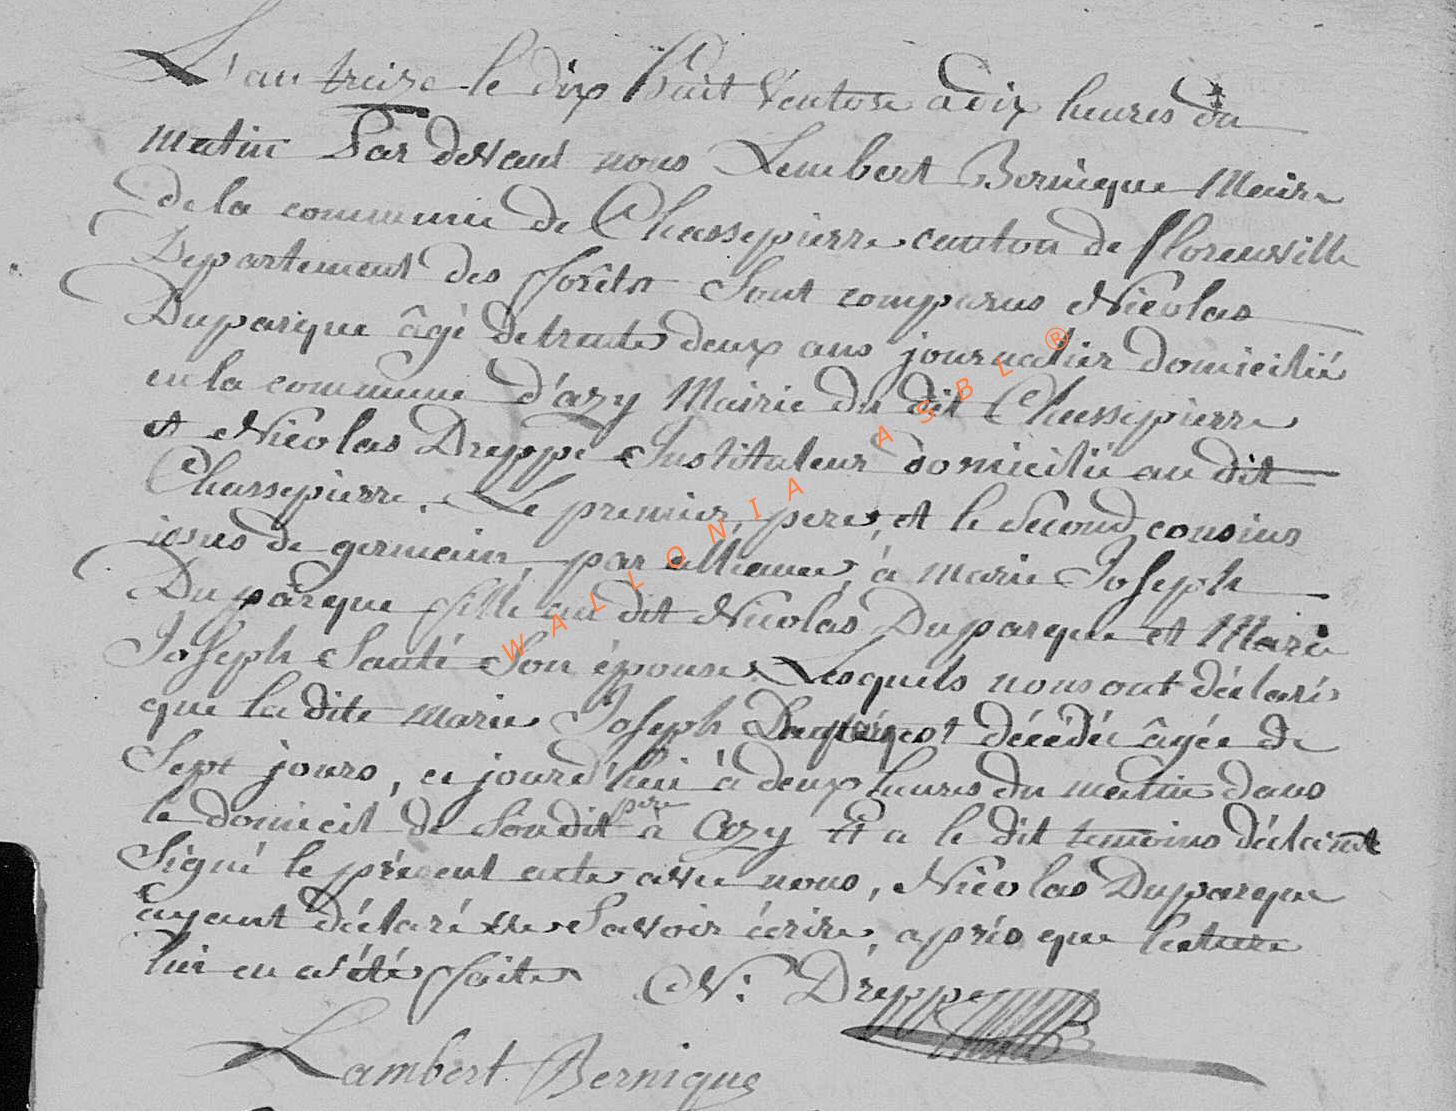 L'an treize le dix huit Ventose a dix heures du
matin Par devant nous Lembert Bernique Maire
de la commune de Chassepierre canton de florenville
Departement des forêts Sont comparus Nicolas
Duparque âgé de trente deux ans journalier domicilié
en la commune d'azy Mairie du dit Chassepierre
et Nicolas Dreppe Instituteur domicilié au dit
Chassepierre. Le premier, pere, et le Second cousins
issus de germain, par alliance, à marie Joseph
Duparque fille au dit Nicolas Duparque et Marie
Joseph Santé Son épouse, Lesquels nous ont déclaré
que la dite marie Joseph est décédée âgée de
Sept jours, ce jourd'hui à deux heures du matin dans
le domicil de Son dit pere à Azy Et a le dit temoins déclarant
Signé le présent acte avec nous, Nicolas Duparque
ayant déclaré ne Savoir écrire, après que lecture
lui en a été faite N: Dreppe
Lambert Bernique
WALLONIA ASBL ®